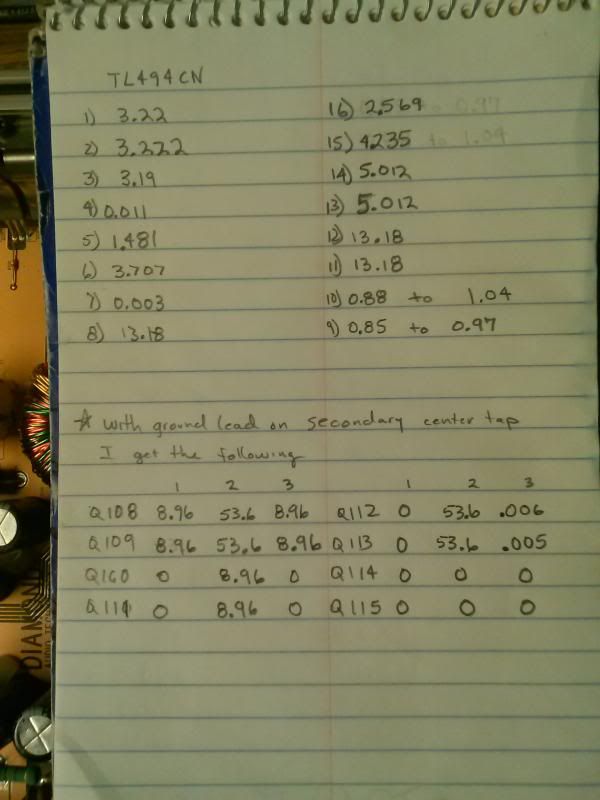 TL494CN
1) 3.22
2) 3.222
3) 3.19
4) 0.011
5) 1.481
6) 3.707
7) 0.003
8) 13.18
16) 2.569
15) 4.235 to 1.04
14) 5.012
13) 5.012
12) 13.18
11) 13.18
10) 0.88 to 1.04
9) 0.85 to 0.97
☆ with ground lead on secondary center tap
I get the following
1 2 3
Q108 8.96 53.6 8.96
Q109 8.96 53.6 8.96
Q160 0 8.96 0
Q111 0 8.96 0
1 2 3
Q112 0 53.6 .006
Q113 0 53.6 .005
Q114 0 0 0
Q115 0 0 0
DIAMOND